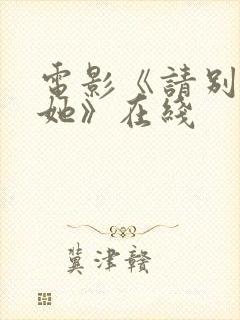 電影《請別
她》在綫
冀津贛